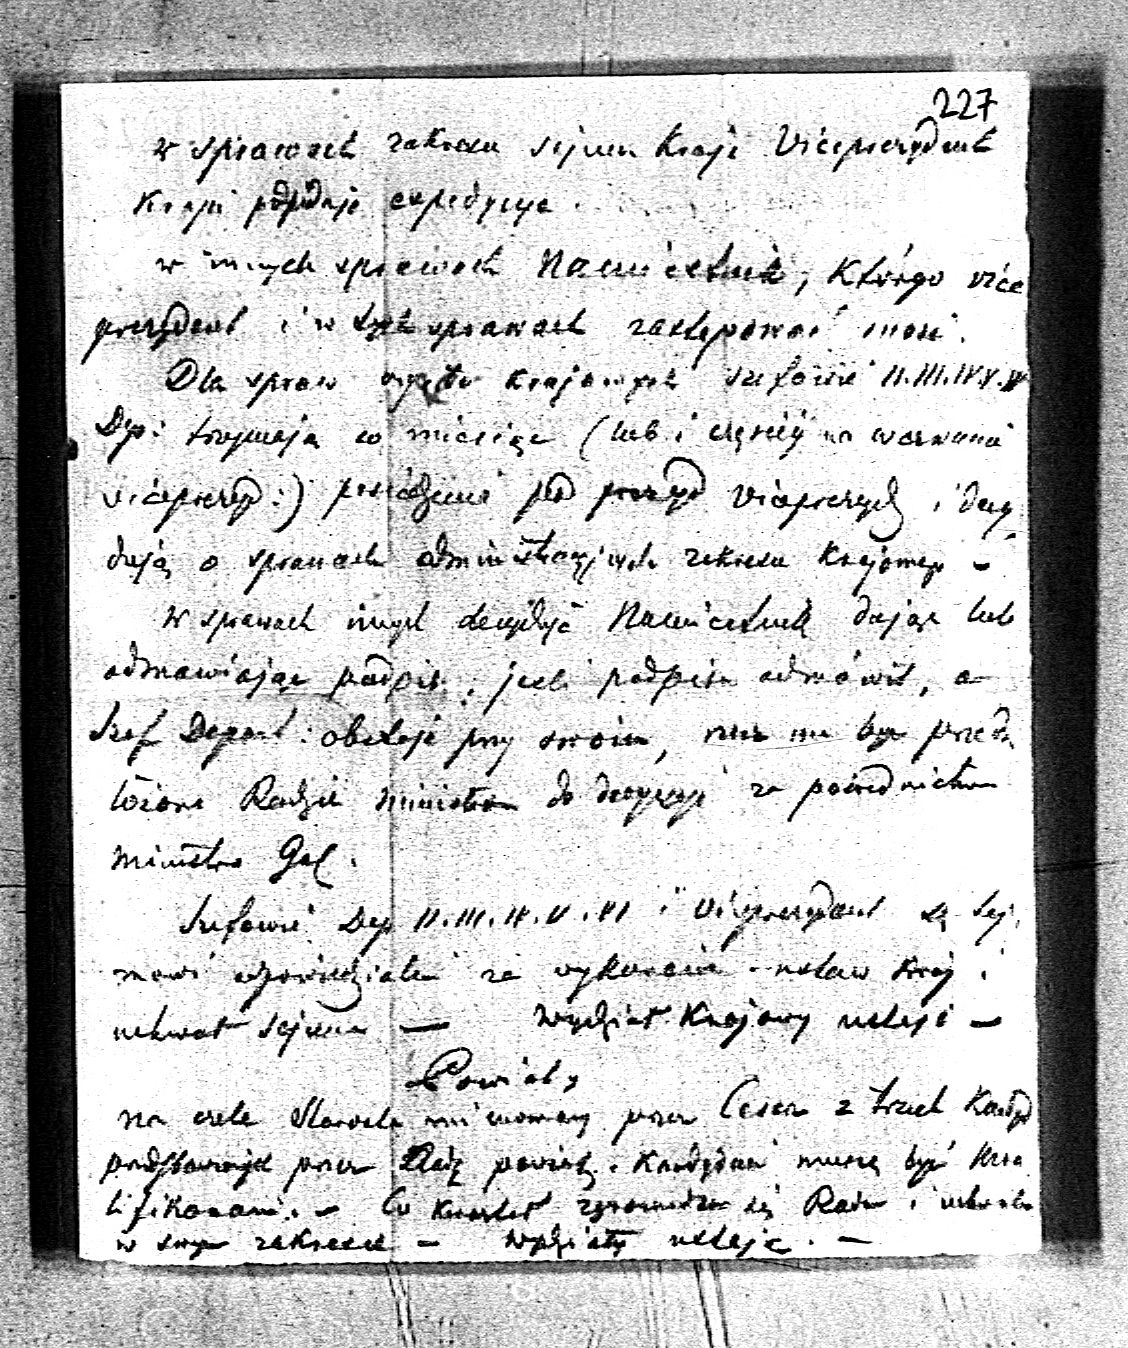 227
w sprawach zakresu sejmu kraj: Viceprezydent
Kraju podpisuje expedycye.
w innych sprawach Namiestnik, którego vice
prezydent i w tych sprawach zastępować może.
Dla spraw krajowych szefowie II.III.IV.V.VI
Dep: trzymają co miesiąc (lub i częściej na wezwanie
viceprezyd:) posiedzenia pod prezyd Viceprezyd i decy
dują o sprawach administracyjnych zakresu krajowego –
W sprawach innych decyduje Namiestnik dając lub
odmawiając podpis; jeśli podpisu odmówił, a
Szef Depart: obstaje przy swoim, rzecz ma być przed
łożona Radzie ministrów do decyzyi za pośrednictwem
ministra Gal.
Szefowie Dep II.III.IV.V.VI i Viceprezydent są Sej
mowi odpowiedzialni za wykonanie ustaw kraj i
uchwał Sejmu — Wydział Krajowy ustaje –
Powiaty
na czele Starosta mianowany przez Cesarza z trzech Kandyd
przedstawionych przez Radę powiat. Kandydaci muszą być kwa
lifikowani. – Co kwartał zgromadza się Rada i uchwala
w swym zakresie – Wydziały ustają. –